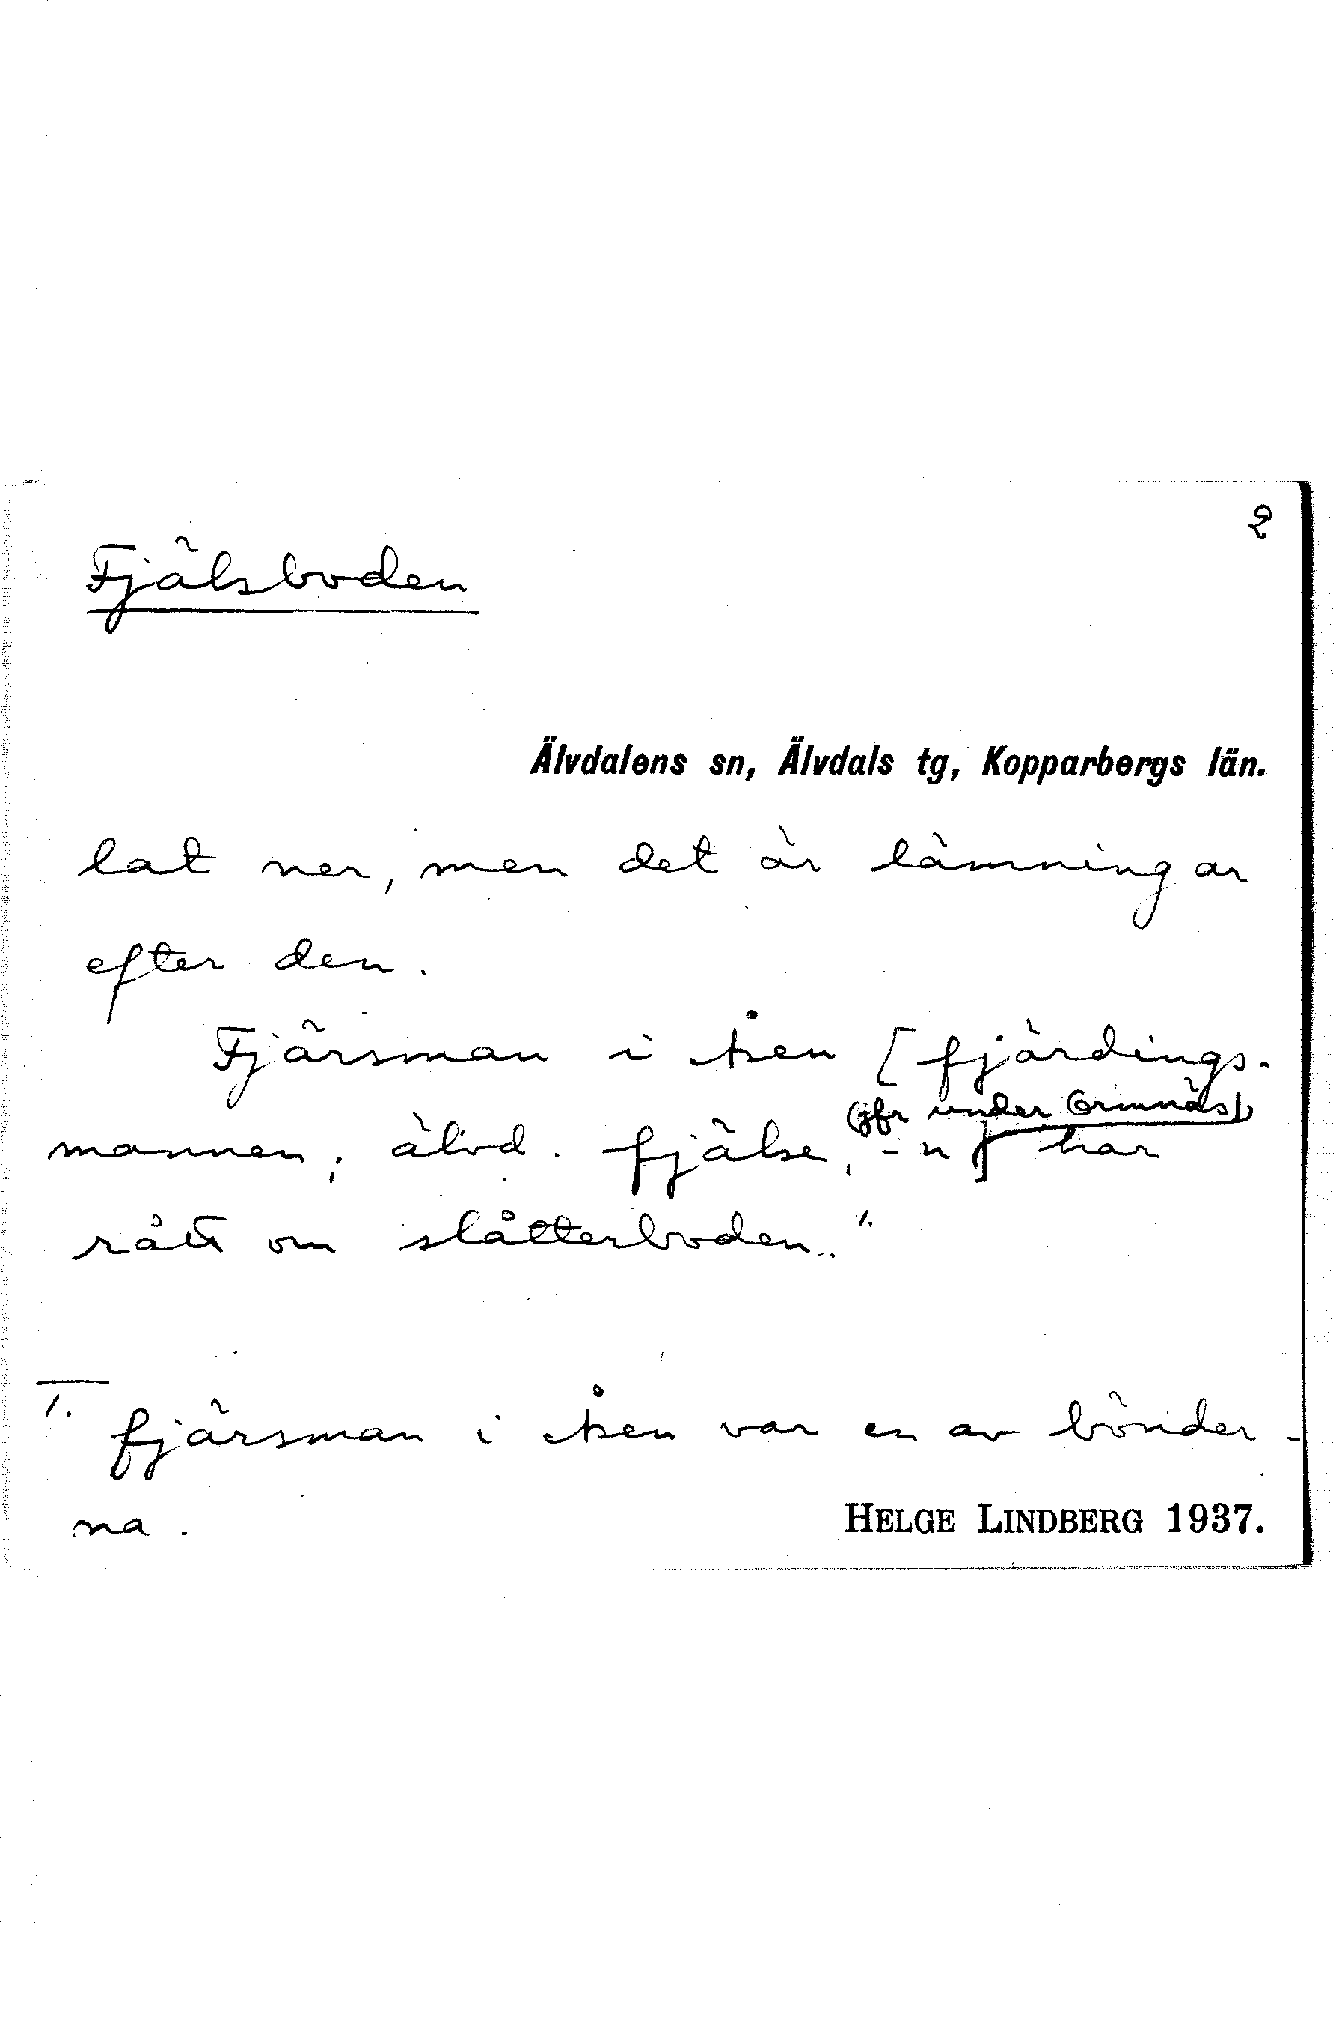 2
Fjälsboden
Älvdalens sn, Älvdals tg, Kopparbergs län.
lat ner, men det är lämningar
efter den.
Fjärsman i Åsen [fjärdings-
(jfr under Ormnäs)
mannen, älvd. fjälse, -n] har
rått om slåtterboden." 1.
1. fjärsman i Åsen var en av bönder-
na.
HELGE LINDBERG 1937.